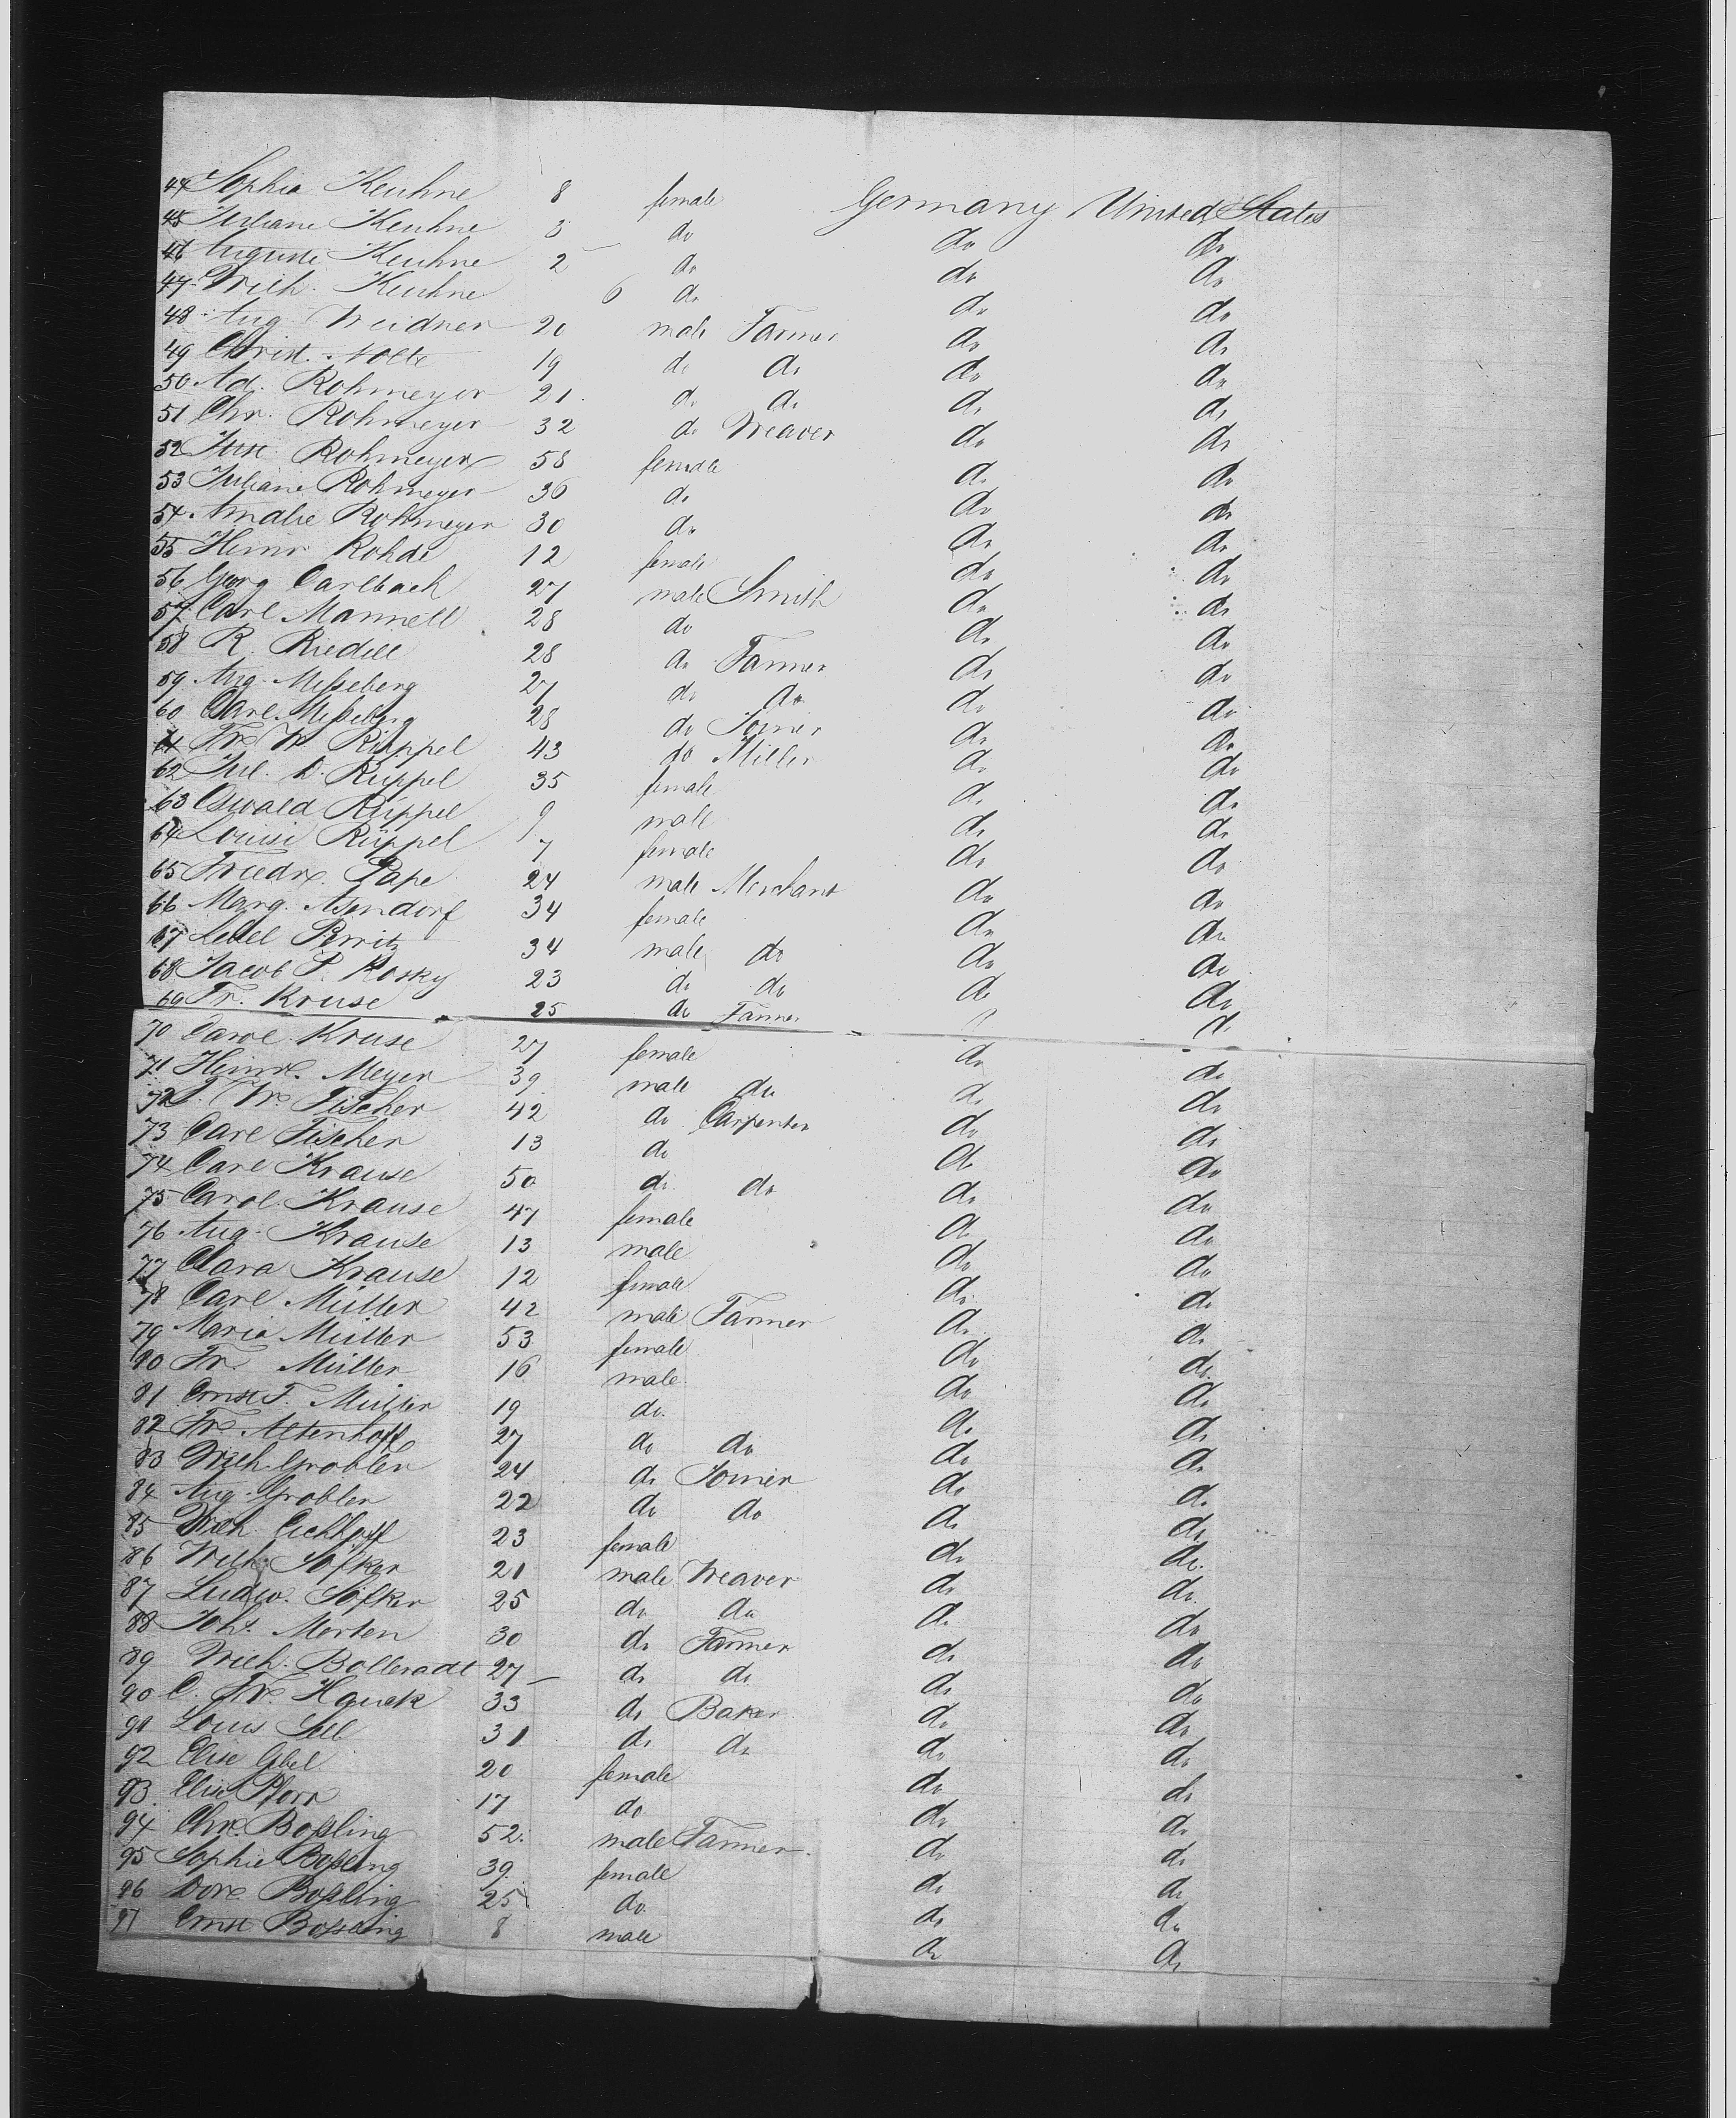 44 Sophia Keuhne 8 female Germany United States
45 Juliane Keuhne 3 do do do
46 Auguste Keuhne 2 - do do do
47 Wilh. Keuhne 6 do do do
48 Aug Weidner 20 male Farmer do do
49 Christ. Nolte 19 do do do do
50 Ad. Rohmeyer 21 do do do do
51 Chr. Rohmeyer 32 do Weaver do do
52 Just Rohmeyer 58 female do do
53 Juliane Rohmeyer 36 do do do
54 Amalie Rohmeyer 30 do do do
55 Heinr Rohde 12 female do do
56 Georg Carlbach 27 male Smith do do
57 Carl Mannell 28 do do do
58 R. Riedell 28 do Farmer do do
59 Aug. Meßeberg 27 do do do do
60 Carl Meßeberg 28 do Joiner do do
61 Fr. W. Rüppel 43 do Miller do do
62 Jul. D. Rüppel 35 female do do
63 Oswald Rüppel 9 male do do
64 Louise Rüppel 7 female do do
65 Friedr. Pape 24 male Merchant do do
66 Marg. Asendorf 34 female do do
67 34 male do do do
68 Jacob P. Kosky 23 do do do do
69 Fr. Kruse 25 do Farmer do do
70 Carol Kruse 27 female do do
71 Heinr. Meyer 39 male do do do
72 J. W. Fischer 42 do Carpenter do do
73 Carl Fischer 13 do do do
74 Carl Krause 50 do do do do
75 Carol. Krause 47 female do do
76 Aug. Krause 13 male do do
77 Clara Krause 12 female do do
78 Carl Müller 42 male Farmer do do
79 Maria Müller 53 female do do
80 Fr. Müller 16 male do do
81 Ernst F. Müller 19 do. do do
82 Fr. Altenhoff 27 do do do do
83 Wilh. Grobler 24 do Joiner do do
84 Aug. Grobler 22 do do do do
85 Wilh. Eichhoff 23 female do do
86 Wilh. Söfker 21 male Weaver do do
87 Ludw. Söfker 25 do do do do
88 Joh. Merten 30 do Farmer do do
89 Wilh. Bolleradt 27 - do do do do
90 C. Fr. Hauck 33 do Baker do do
91 Louis Sell 31 do do do do
92 Elise Abel 20 female do do
93 Elise Pforr 17 do do do
94 Chr. Boßling 52. male Farmer do do
95 Sophie Boßling 39. female do do
96 Dore Boßling 25 do do do
97 Ernst Boßling 8 male do do